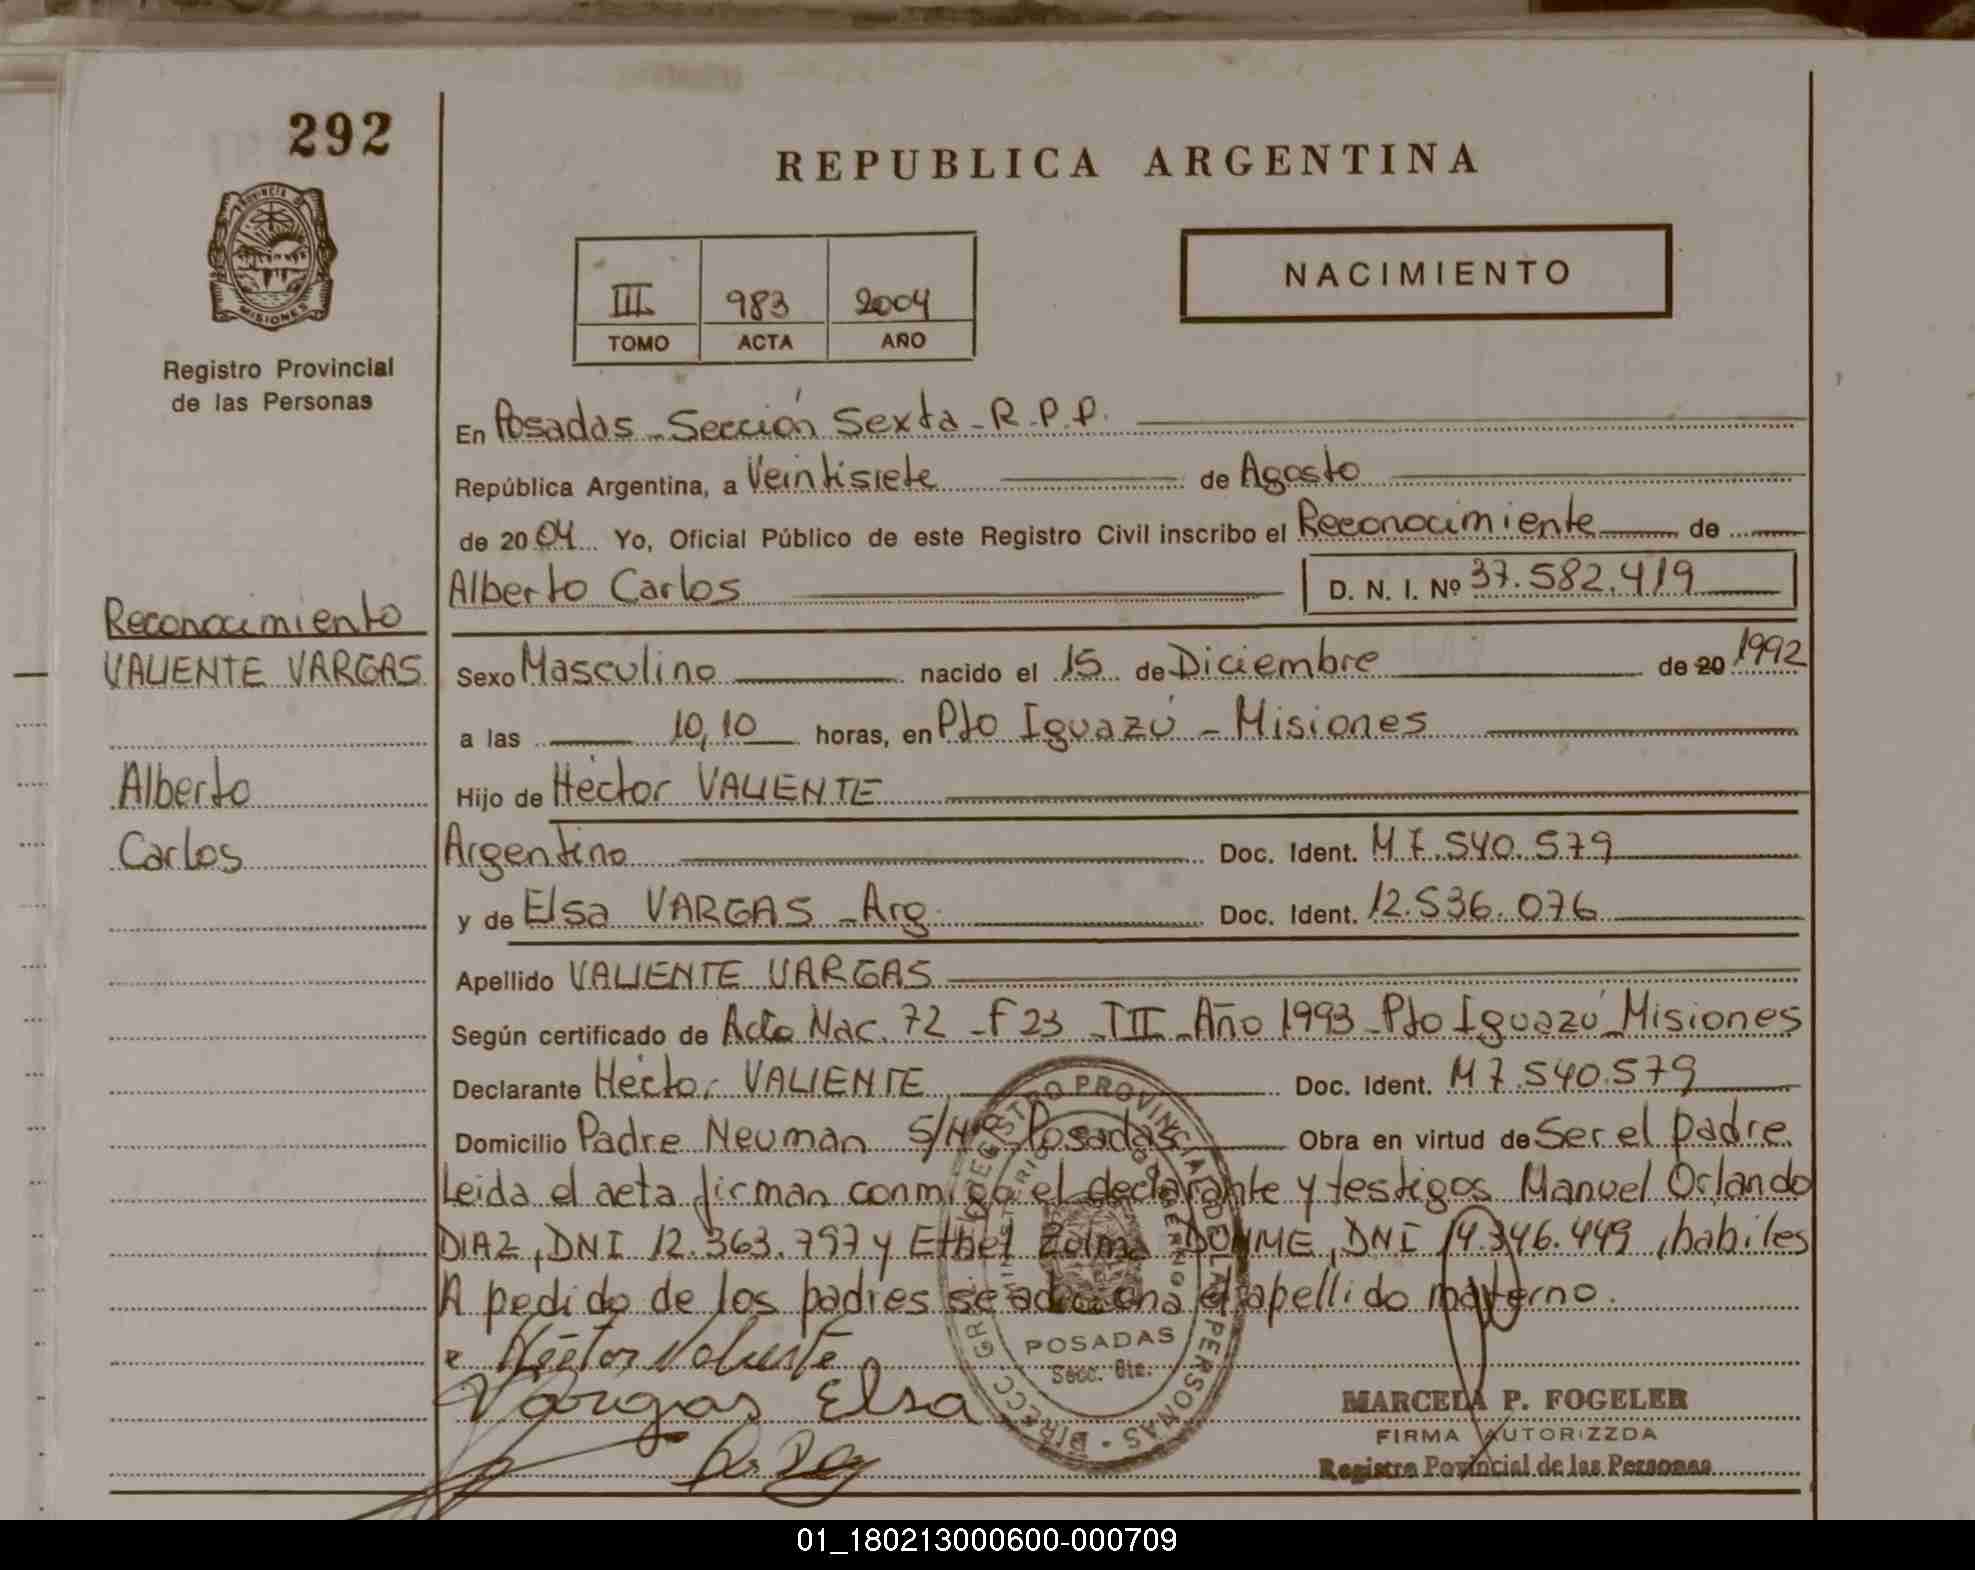 292
REPUBLICA ARGENTINA
PROVINCIA D
MISIONES
Registro Provincial
de las Personas
III 983 2004
TOMO ACTA AÑO
NACIMIENTO
En Posadas - Sección Sexta - R.P.P.
República Argentina, a Veintisiete de Agosto
de 2004 Yo, Oficial Público de este Registro Civil inscribo el Reconocimiente de
Alberto Carlos D. N. I. Nº 37.582.419
Reconocimiento
VALIENTE VARGAS
Alberto
Carlos
Sexo Masculino nacido el 15 de Diciembre de 20 1992
a las 10,10 horas, en Pto Iguazú - Misiones
Hijo de Héctor VALIENTE
Argentino Doc. Ident. M 7.540.579
y de Elsa VARGAS - Arg. Doc. Ident. 12.536.076
Apellido VALIENTE VARGAS
Según certificado de Acta Nac. 72 - F 23 - TII - Año 1993 - Pto Iguazú - Misiones
Declarante Héctor VALIENTE Doc. Ident. M 7.540.579
Domicilio Padre Neuman S/Nº Posadas Obra en virtud de Ser el padre
Leida el acta firman conmigo el declarante y testigos Manuel Orlando
DIAZ, DNI 12.363.797 y Ethel Zulma, DNI 14.346.449, habiles
A pedido de los padres se adiciona el apellido materno.
Héctor Valiente
Vargas Elsa
DIRECC. GRAL. DE REGISTRO PROVINCIAL DE LAS PERSONAS
MINISTERIO GOBIERNO
POSADAS
Secc. 6ta.
MARCELA P. FOGELER
FIRMA AUTORIZZDA
Registro Povincial de las Personas
01_180213000600-000709